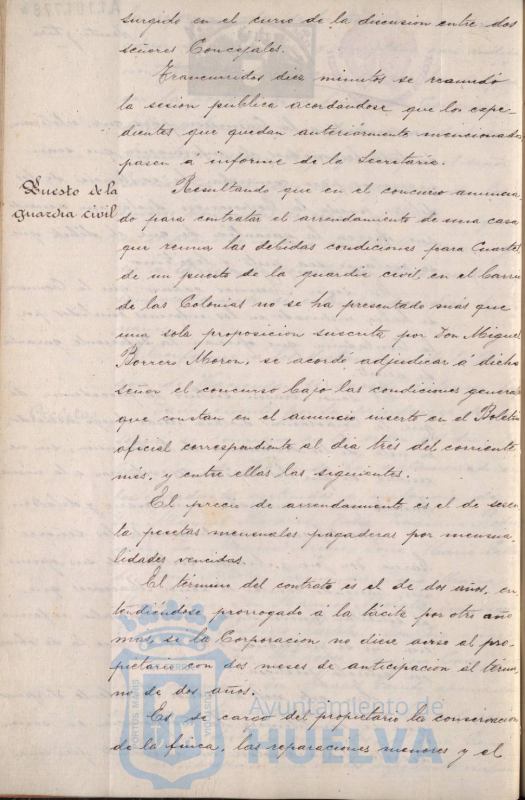 surgido en el curso de la discusion entre dos
señores Concejales.
Trancurridos diez minutos se reanudó
la sesion publica acordándose que los expe-
dientes que quedan anteriormente mencionados
pasen a informe de la Secretaria.
Puesto de la
guardia civil
Resultando que en el concurso anuncia-
do para contratar el arrendamiento de una casa
que reuna las debidas condiciones para Cuartel
de un puesto de la guardia civil en el Barrio
de las Colonias no se ha presentado más que
una sola proposicion suscrita por Don Miguel
Borrero Moron, se acordó adjudicar á dicho
señor el concurso bajo las condiciones general
que constan en el anuncio inserto en el Boletin
oficial correspondiente al dia trés del corriente
més, y entre ellas las siguientes.
El precio de arrendamiento és el de sesen
ta pesetas mensuales pagaderas por mensua-
lidades vencidas.
El término del contrato és el de dos años, en
tendiéndose prorrogado á la tácita por otro año
mas, si la Corporacion no diese aviso al pro-
pietario con dos meses de anticipacion al térmi
no de dos años.
Es de cargo del propietario la conservacion
de la finca, las reparaciones menores y el
PORTUS MARIS
CUSTODIA
Ayuntamiento de
HUELVA